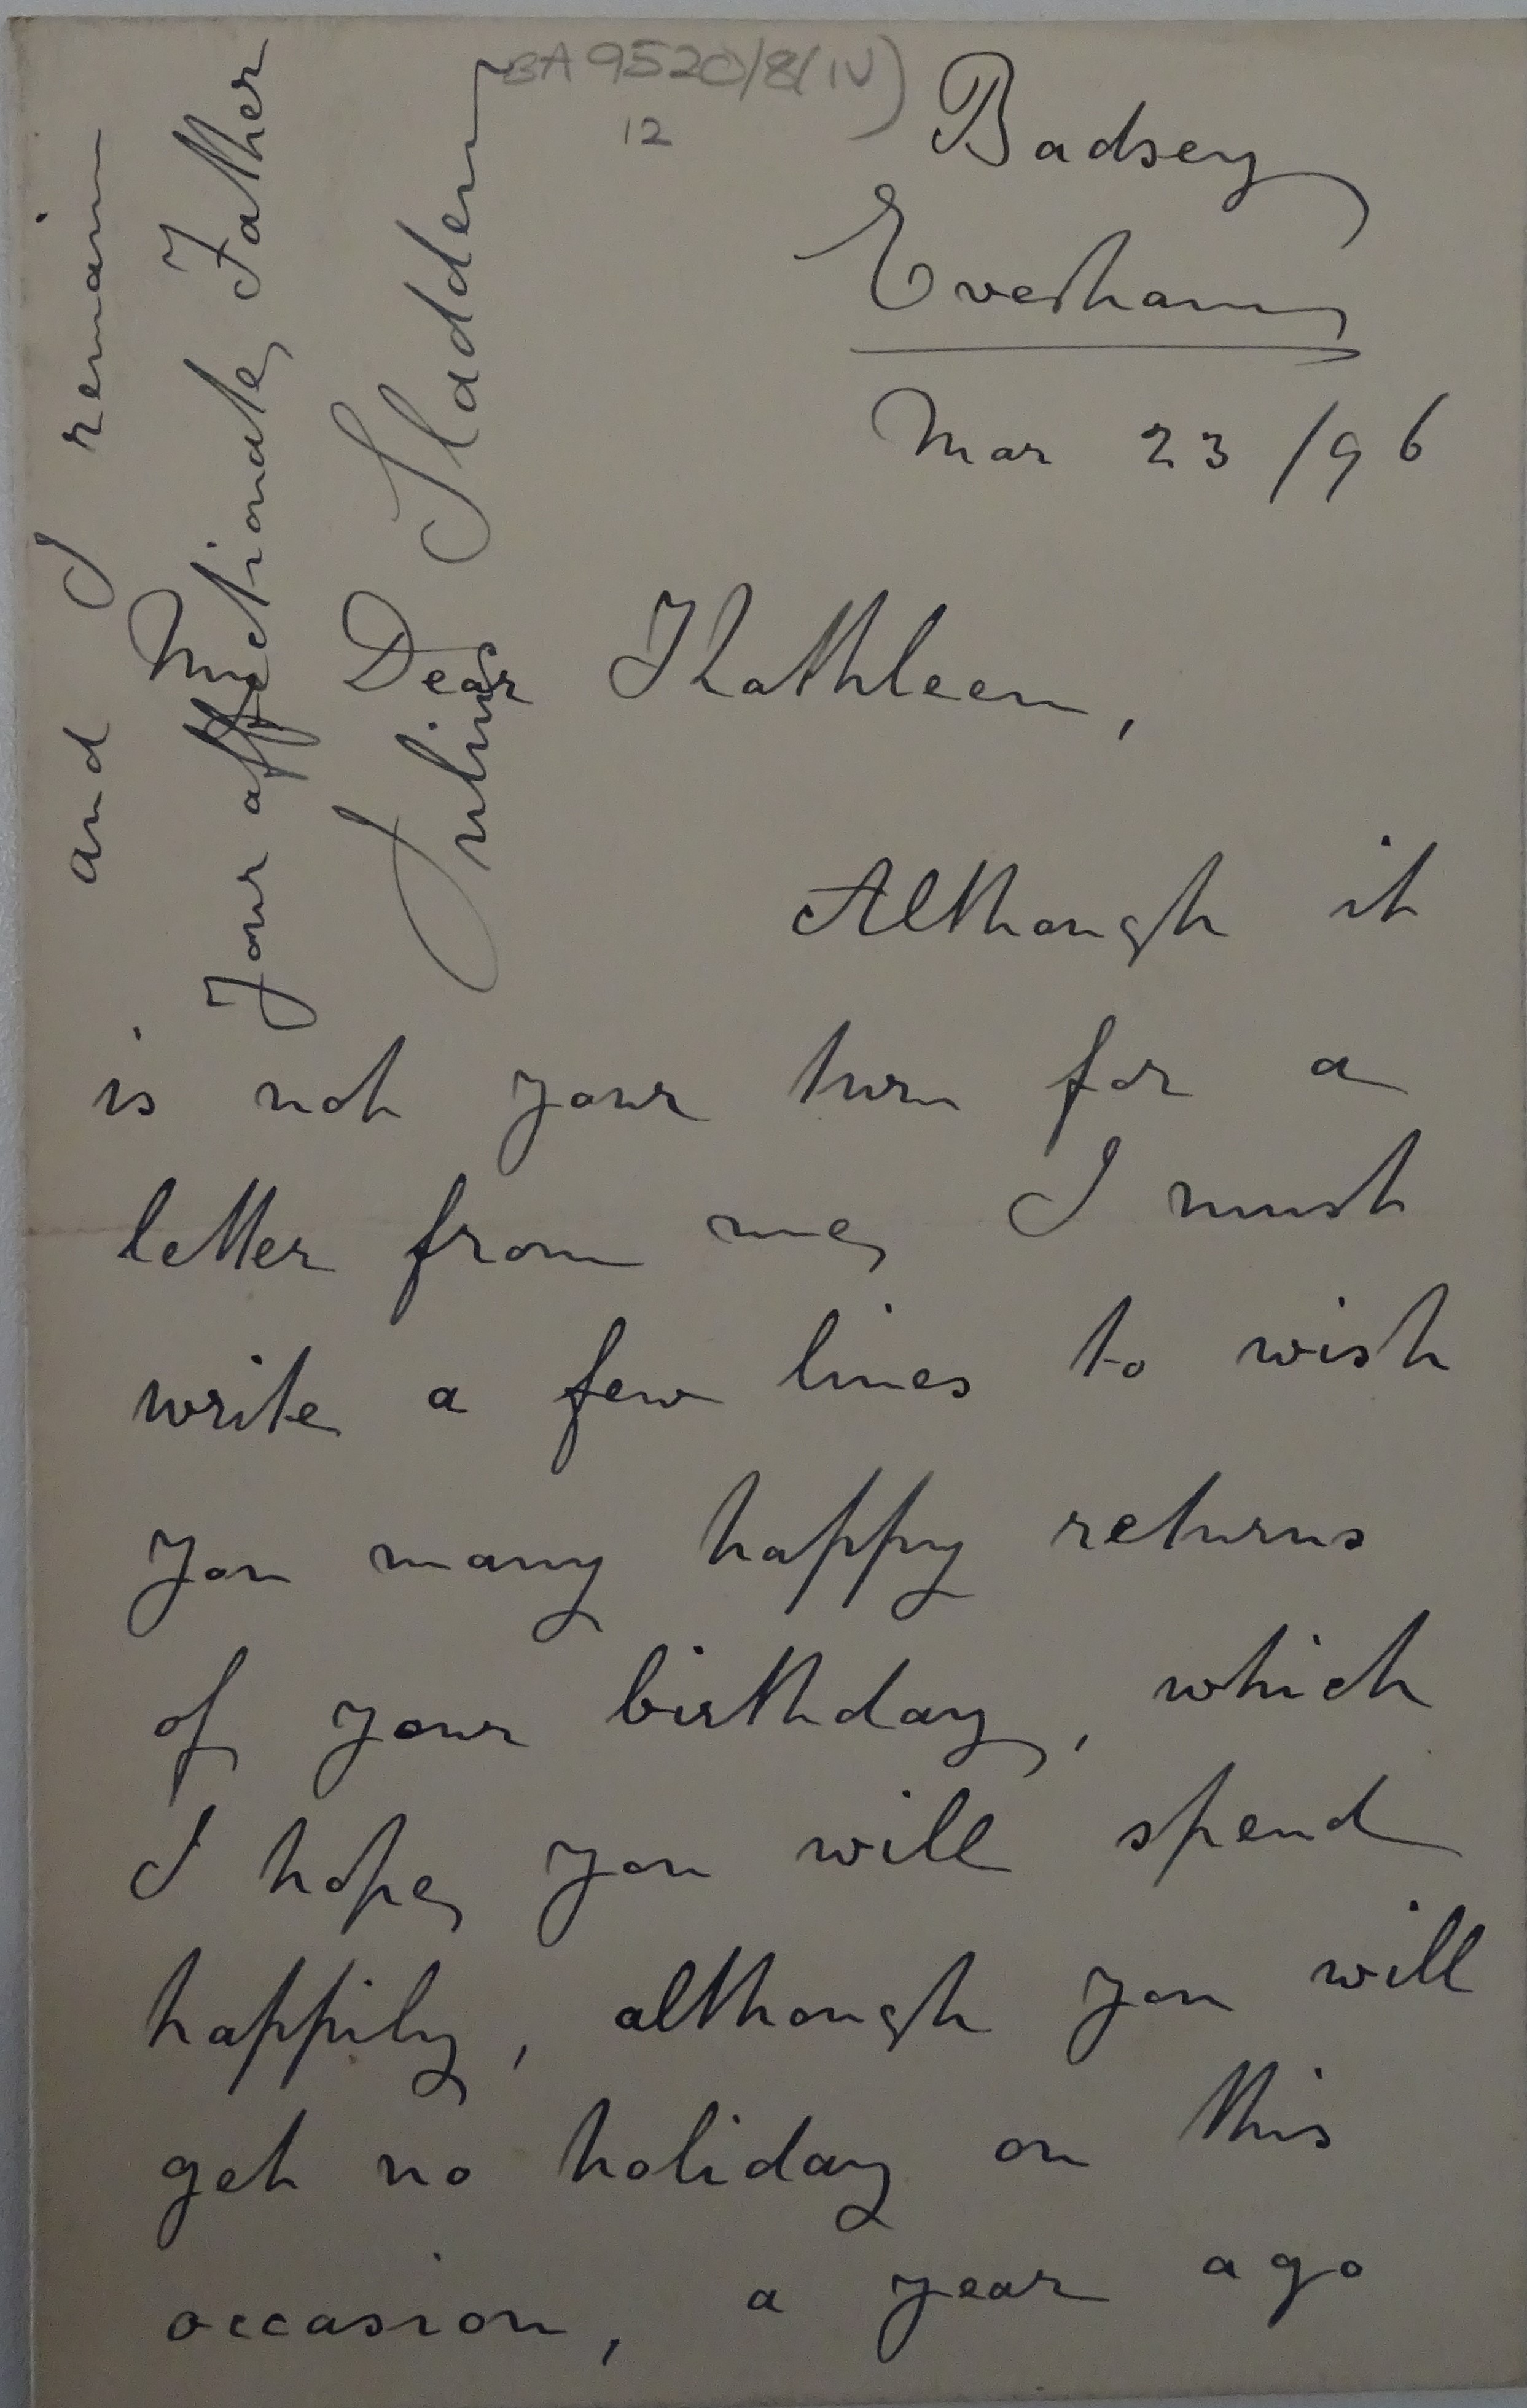 BA 9520/8(IV)
12
Badsey
Evesham
Mar 23 /96
My Dear Kathleen,
Although it
is not your turn for a
letter from me, I must
write a few lines to wish
you many happy returns
of your birthday, which
I hope you will spend
happily, although you will
get no holiday on this
occasion, a year ago
and I remain
Your affectionate Father
Julius Sladden